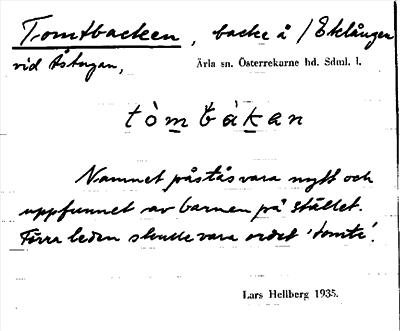 Tomtbacken, backe å /Eklången
vid Åstugan, Ärla sn. Österrekarne hd. Sdml. l.
tòmbàkan
Namnet påstås vara nytt och
uppfunnet av barnen på stället.
Förra leden skulle vara ordet 'tomte'.
Lars Hellberg 1935.